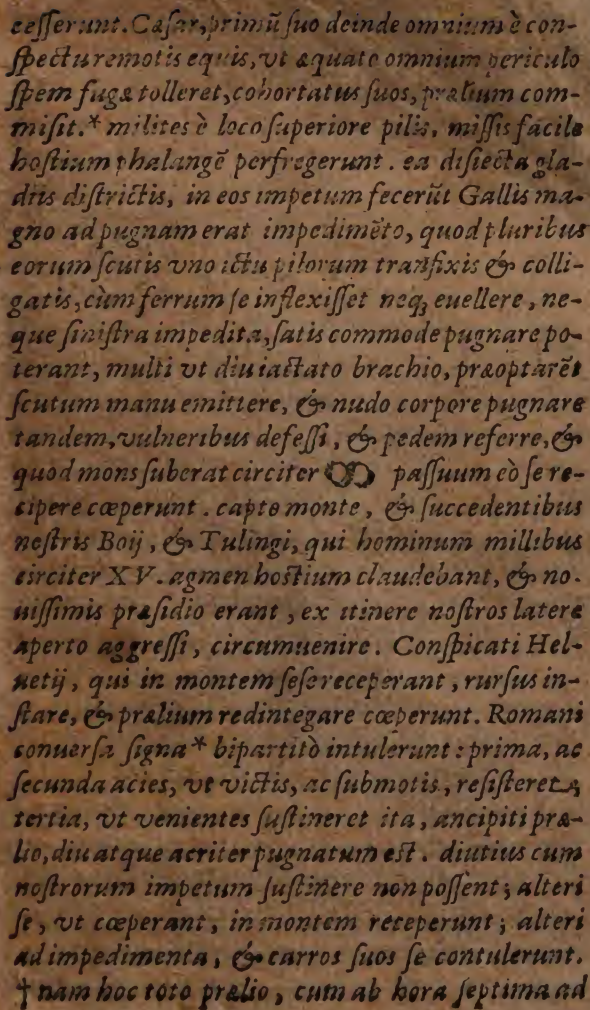 cesserunt. Cæsar, primũ suo deinde omnium è con-
spectu remotis equis, vt æquato omnium periculo
spem fugæ tolleret, cohortatus suos, prælium com-
misit.* milites è loco superiore pilis, missis facile
hostium phalangẽ perfregerunt. ea disiecta gla-
dijs districtis, in eos impetum fecerũt Gallis ma-
gno ad pugnam erat impedimẽto, quod pluribus
eorum scutis vno ictu pilorum transfixis & colli-
gatis, cùm ferrum se inflexisset neq; euellere, ne-
que sinistra impedita, satis commode pugnare po-
terant, multi vt diu iactato brachio, præoptarẽt
scutum manu emittere, & nudo corpore pugnare
tandem, vulneribus defessi, & pedem referre, &
quod mons suberat circiter ↀ passuum eò se re-
cipere cœperunt. capto monte, & succedentibus
nostris Boij, & Tulingi, qui hominum millibus
circiter XV. agmen hostium claudebant, & no-
uissimis præsidio erant, ex itinere nostros latere
aperto aggressi, circumuenire. Conspicati Hel-
uetij, qui in montem sese receperant, rursus in-
stare, & prælium redintegare cœperunt. Romani
conuersa signa* bipartitò intulerunt: prima, ac
secunda acies, vt victis, ac submotis, resisteret,
tertia, vt venientes sustineret ita, ancipiti præ-
lio, diu atque acriter pugnatum est. diutius cum
nostrorum impetum sustinere non possent; alteri
se, vt cœperant, in montem receperunt; alteri
ad impedimenta, & carros suos se contulerunt.
† nam hoc toto prælio, cum ab hora septima ad